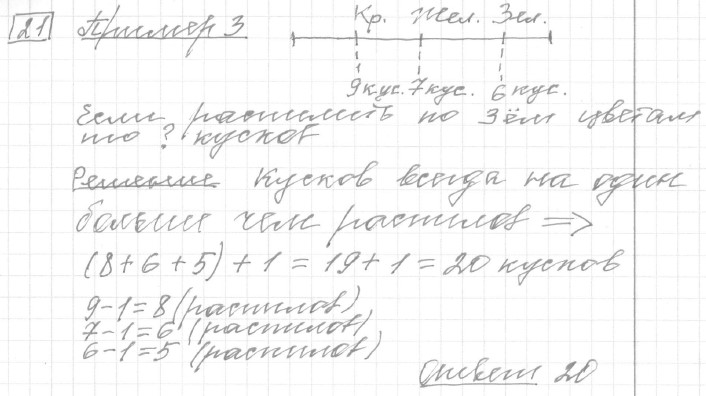 21 Пример 3
Кр. Жел. Зел.
9 кус. 7 кус. 6 кус.
Если распилить по 3ём цветам
то ? кусков
Решение Кусков всегда на один
больше чем распилов ⇒
(8+6+5)+1=19+1=20 кусков
9-1=8 (распилов)
7-1=6 (распилов)
6-1=5 (распилов)
Ответ 20